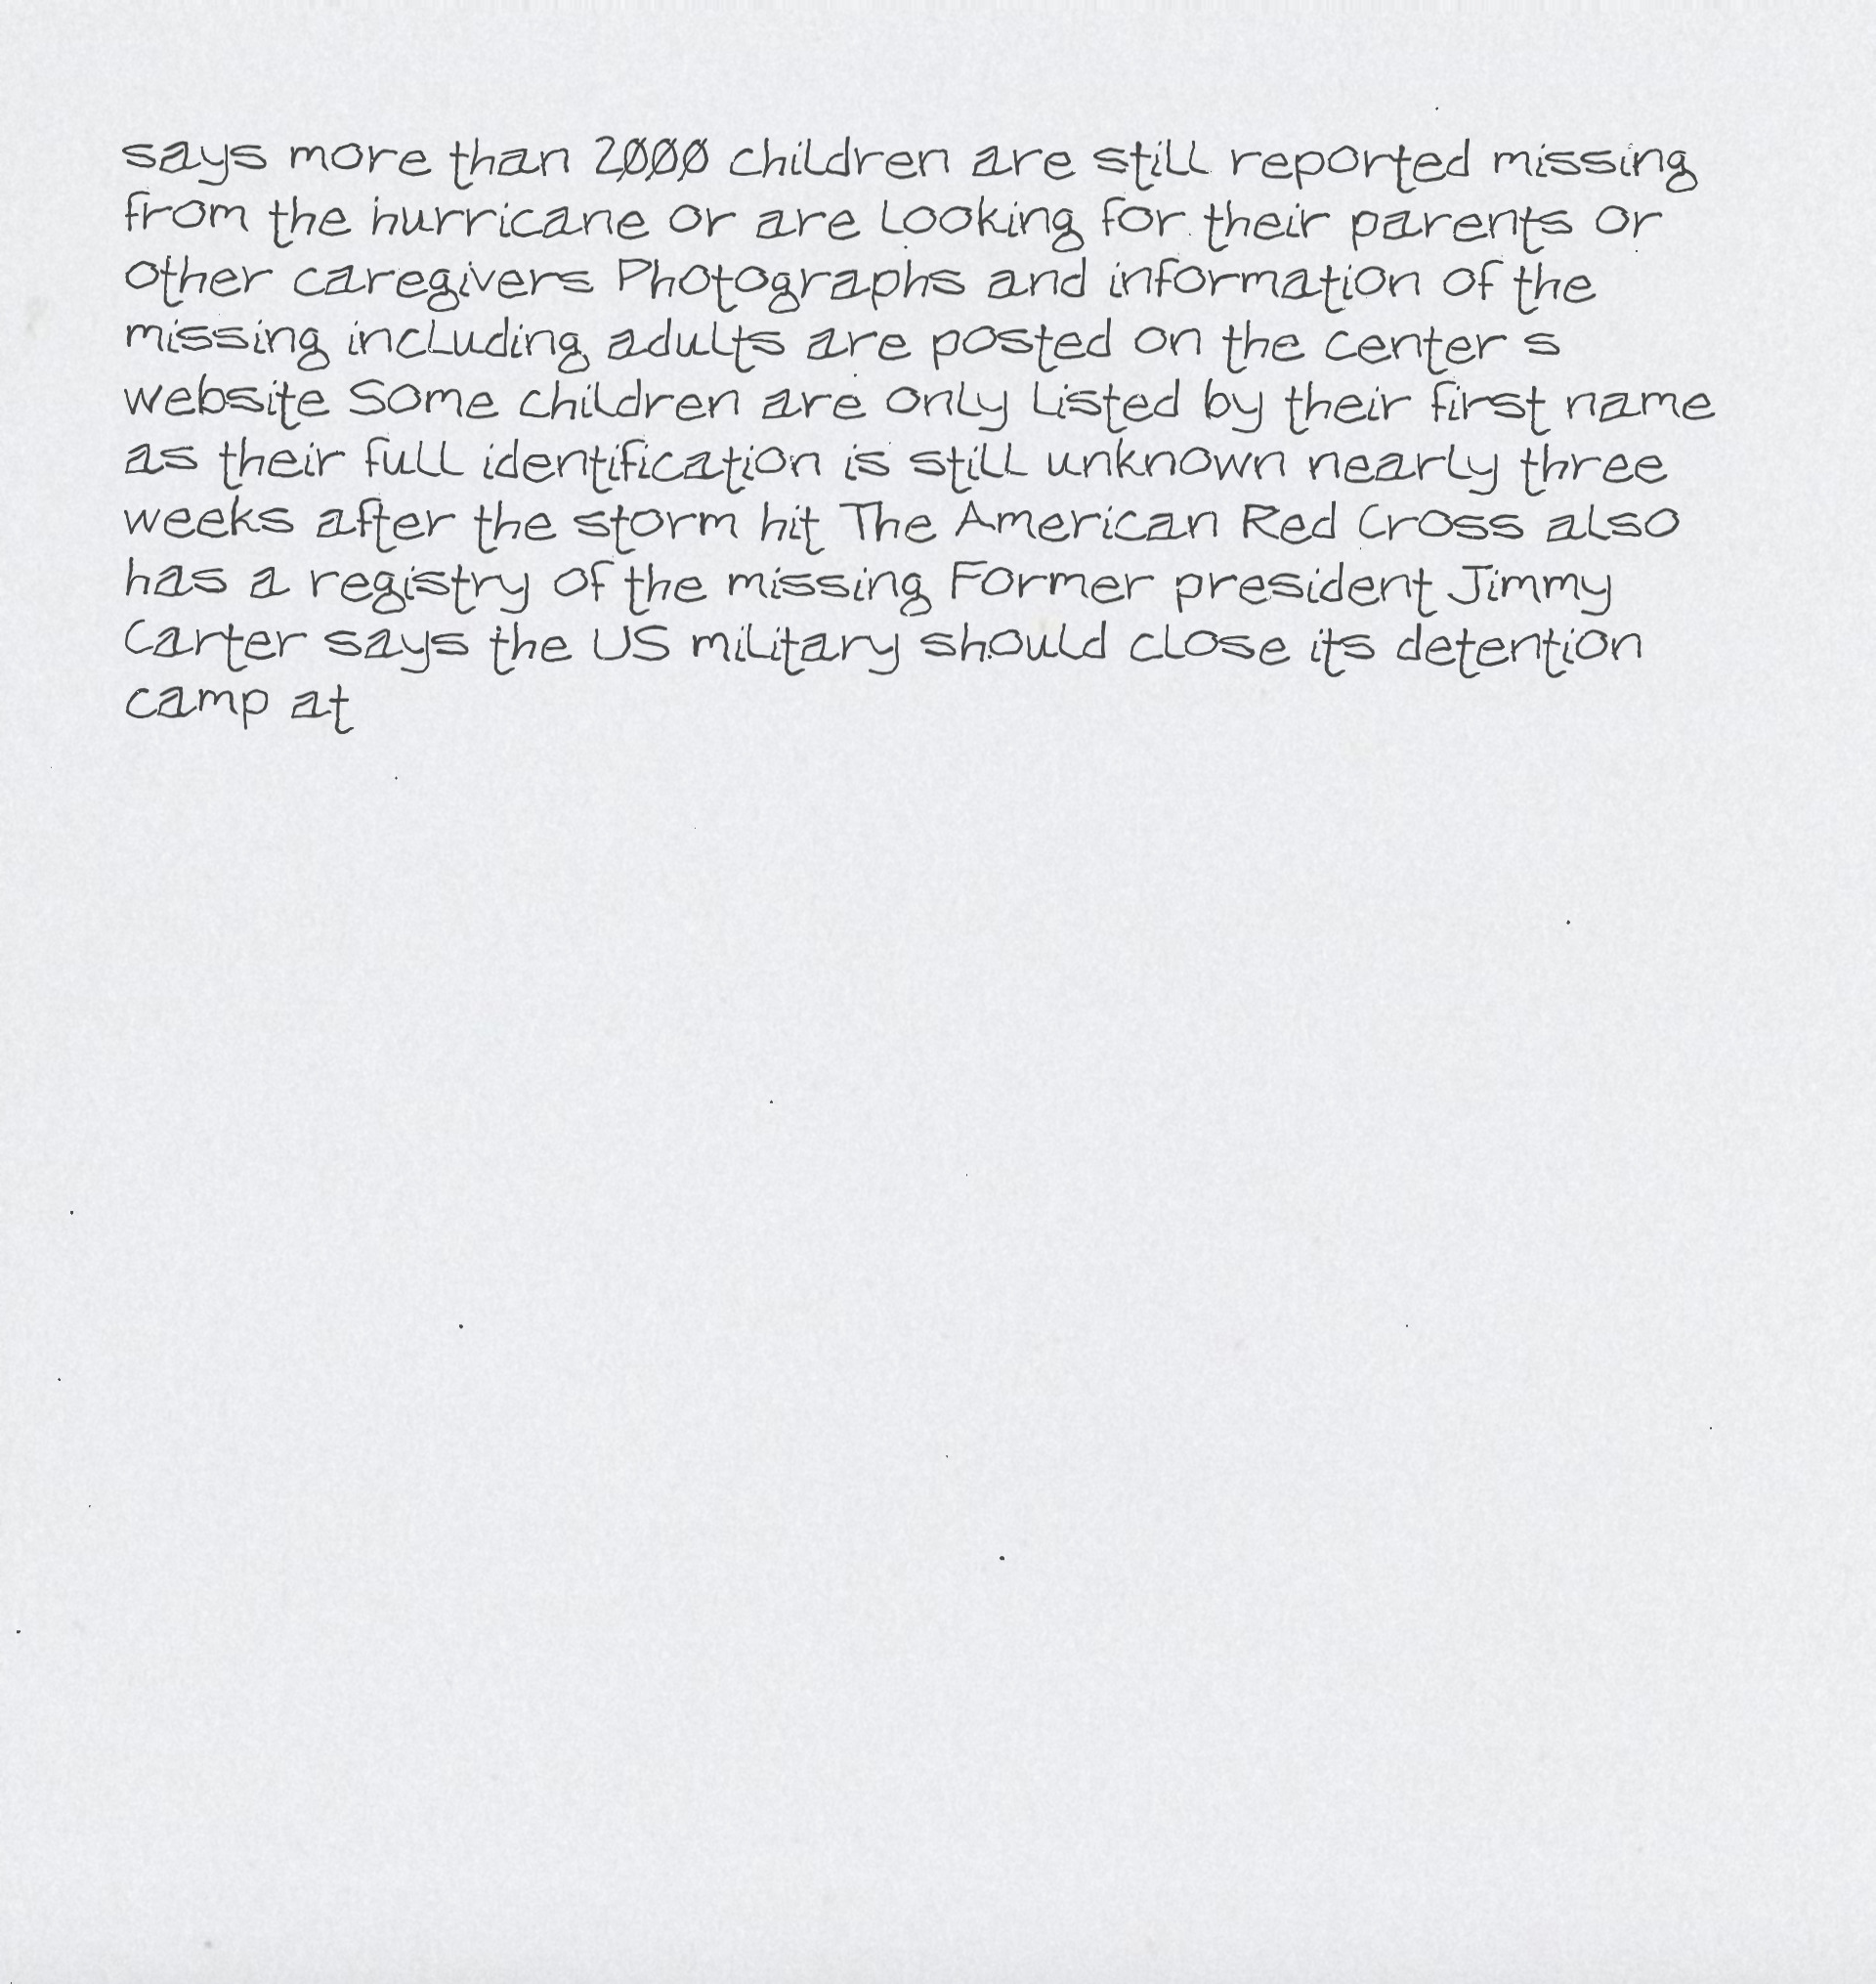 says more than 2000 children are still reported missing
from the hurricane or are looking for their parents or
other caregivers Photographs and information of the
missing including adults are posted on the center s
website Some children are only listed by their first name
as their full identification is still unknown nearly three
weeks after the storm hit The American Red Cross also
has a registry of the missing Former president Jimmy
Carter says the US military should close its detention
camp at